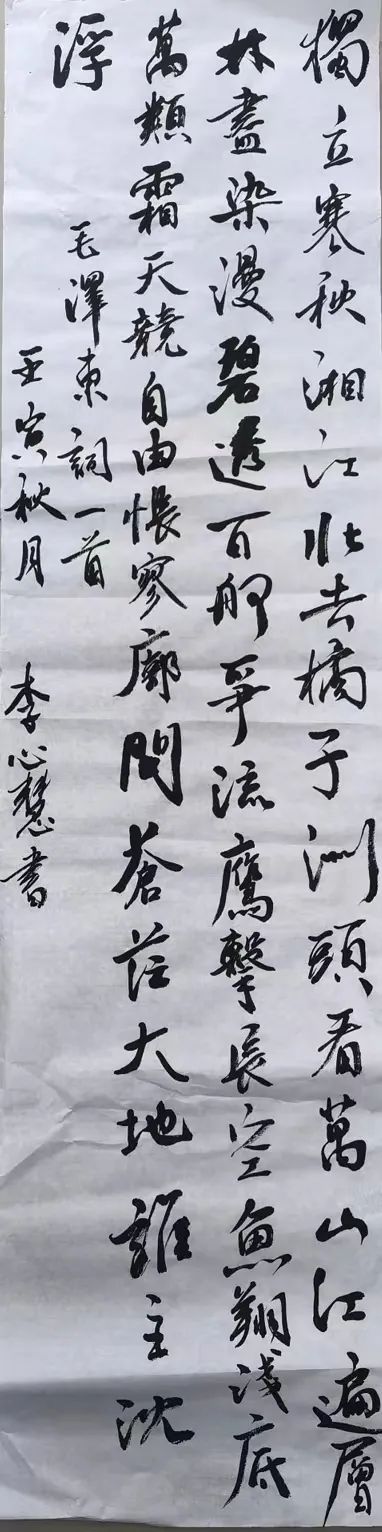 獨立寒秋湘江北去橘子洲頭看萬山江遍層
林盡染漫碧透百舸爭流鷹擊長空魚翔淺底
萬類霜天競自由悵寥廓問蒼茫大地誰主沈
浮
毛澤東詞一首
壬寅秋月 李心慧書